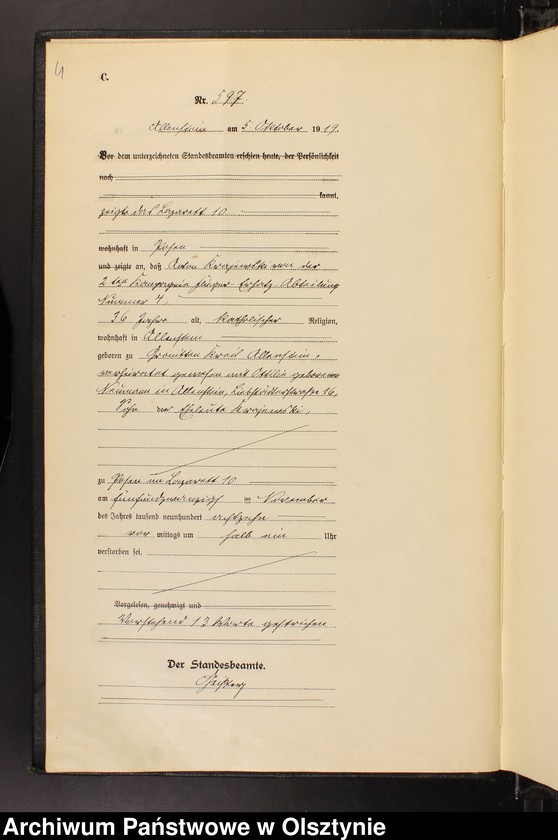 4
C.
Nr. 597.
Allenstein am 5 Oktober 1919.
Vor dem unterzeichneten Standesbeamten erschien heute, der Persönlichkeit
nach
kannt,
zeigte das Lazarett 10
wohnhaft in Posen
und zeigte an, daß Anton Krajewski von der
2ten Kompagnie Flieger Ersatz Abteilung
Nummer 4,
36 Jahre alt, katholischer Religion,
wohnhaft in Allenstein
geboren zu Kreis Allenstein,
verheiratet gewesen mit Ottilie geborenen
Neumann in Allenstein, Liebstädterstraße 16,
Sohn der Eheleute Krajewski,
zu Posen im Lazarett 10
am fünfundzwanzigsten November
des Jahres tausend neunhundert achtzehn
vor mittags um halb ein Uhr
verstorben sei.
Vorgelesen, genehmigt und
Vorstehend 13 Worte gestrichen
Der Standesbeamte.
Archiwum Państwowe w Olsztynie